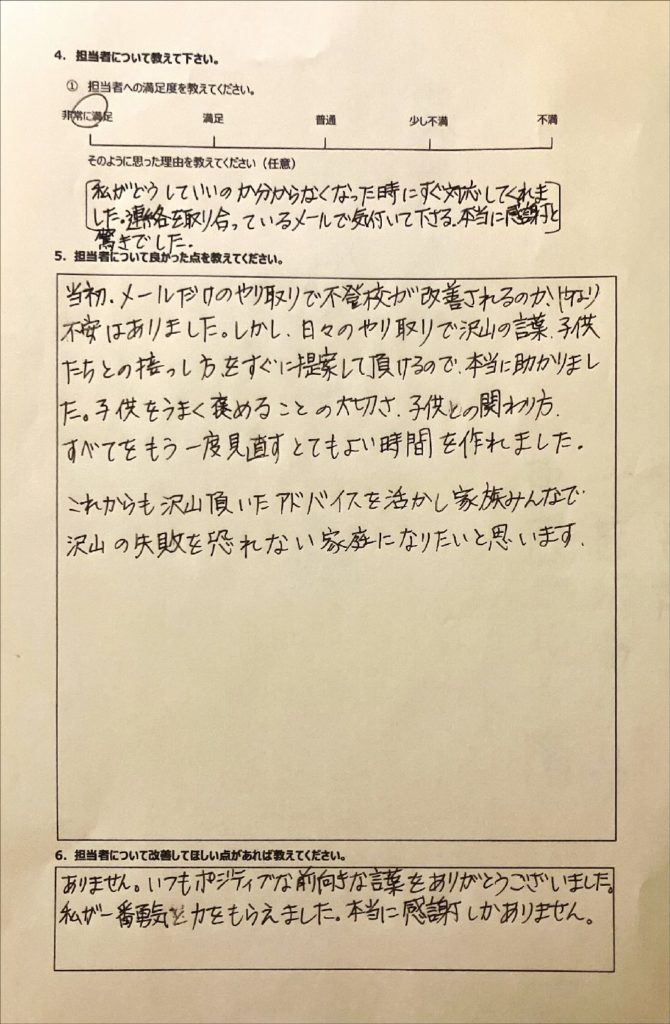 4. 担当者について教えて下さい。
① 担当者への満足度を教えてください。
非常に満足 満足 普通 少し不満 不満
そのように思った理由を教えてください（任意）
私がどうしていいのか分からなくなった時にすぐ対応してくれま
した。連絡を取り合っているメールで気付いて下さる。本当に感謝と
驚きでした.
5. 担当者について良かった点を教えてください。
当初、メールだけのやり取りで不登校が改善されるのか、かなり
不安はありました。しかし、日々のやり取りで沢山の言葉、子供
たちとの接っし方、をすぐに提案して頂けるので、本当に助かりまし
た。子供をうまく褒めることの大切さ、子供との関わり方、
すべてをもう一度見直すとてもよい時間を作れました。
これからも沢山頂いたアドバイスを活かし家族みんなで
沢山の失敗を恐れない家庭になりたいと思います.
6. 担当者について改善してほしい点があれば教えてください。
ありません。いつもポジティブな前向きな言葉をありがとうございました。
私が一番勇気と力をもらえました。本当に感謝しかありません。